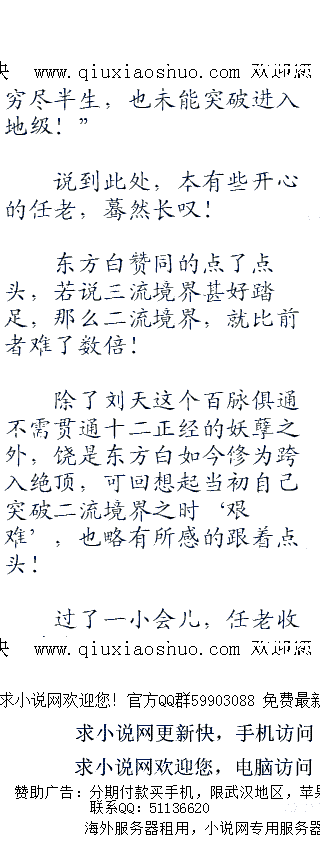 快 www.qiuxiaoshuo.com 欢迎您
穷尽半生，也未能突破进入
地级！”
说到此处，本有些开心
的任老，蓦然长叹！
东方白赞同的点了点
头，若说三流境界甚好踏
足，那么二流境界，就比前
者难了数倍！
除了刘天这个百脉俱通
不需贯通十二正经的妖孽之
外，饶是东方白如今修为跨
入绝顶，可回想起当初自己
突破二流境界之时‘艰
难’，也略有所感的跟着点
头！
过了一小会儿，任老收
快 www.qiuxiaoshuo.com 欢迎您
求小说网欢迎您！官方QQ群59903088 免费最新
求小说网更新快，手机访问
求小说网欢迎您，电脑访问
赞助广告：分期付款买手机，限武汉地区，苹果
联系QQ：51136620
海外服务器租用，小说网专用服务器